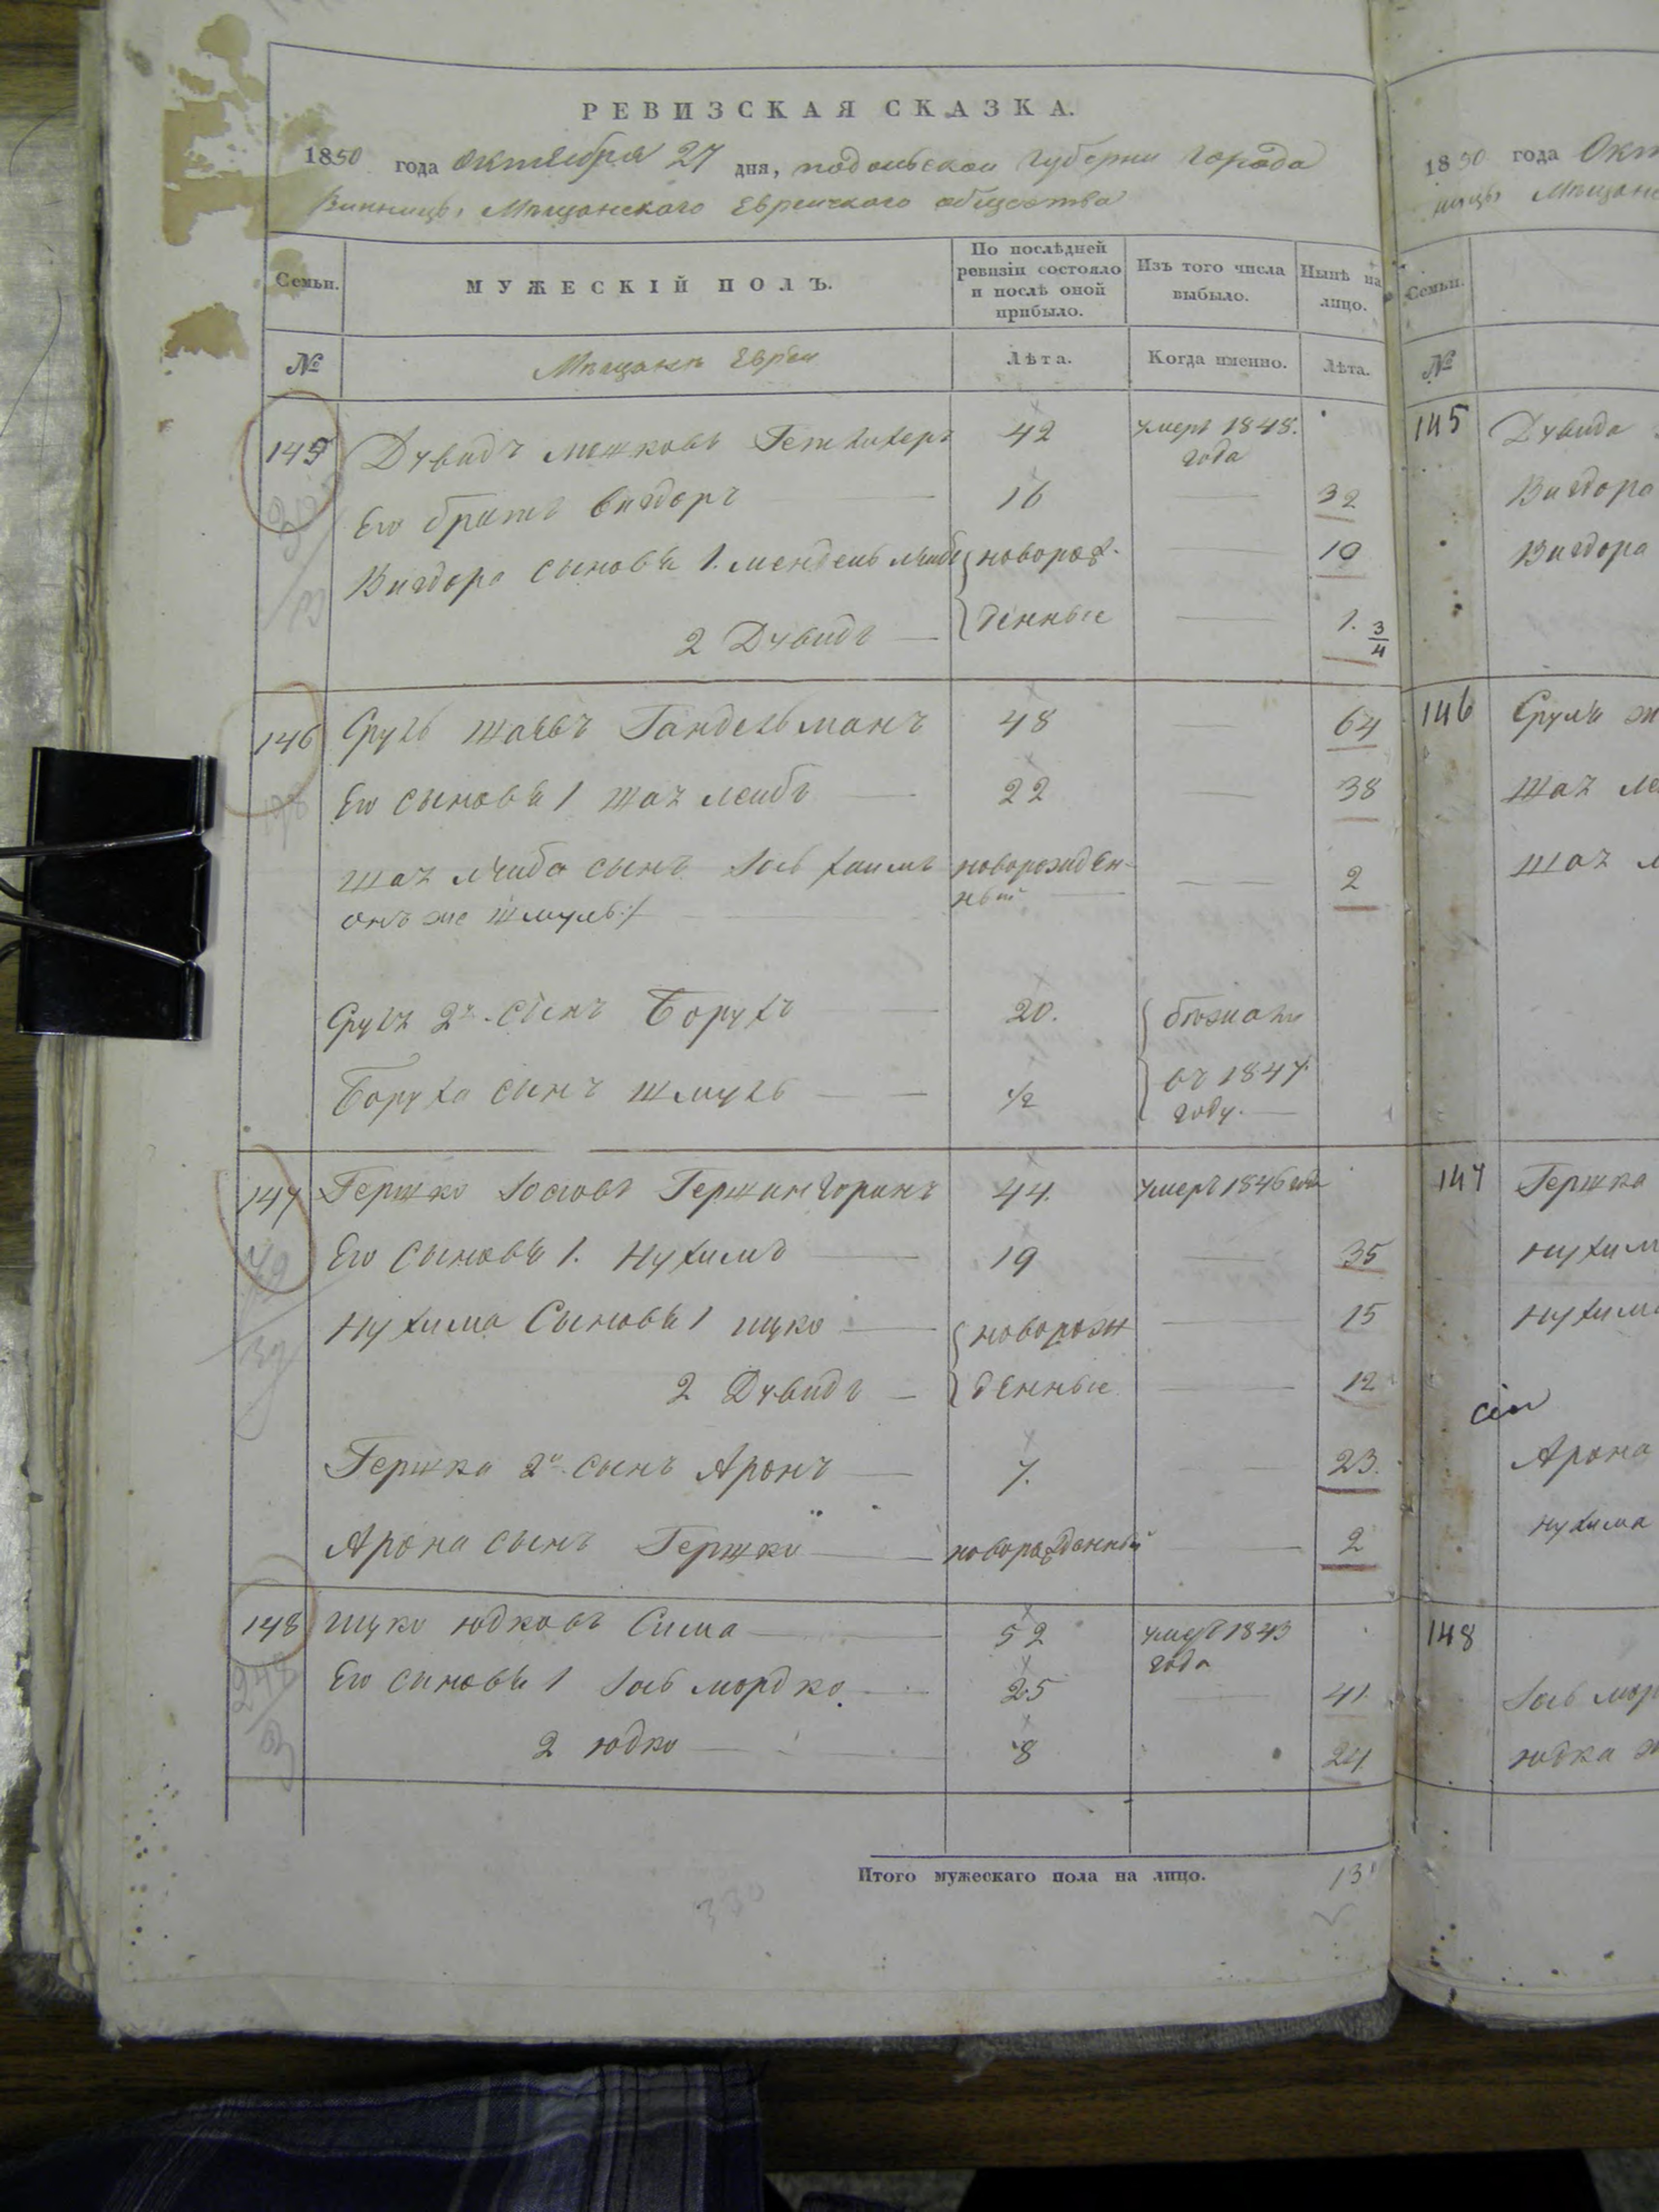 РЕВИЗСКАЯ СКАЗКА.
1850 года октября 27 дня, подольской Губернии города
Винницы Мещанского Еврейского общества
Семьи. МУЖЕСКІЙ ПОЛЪ. По послѣдней ревизіи состояло и послѣ оной прибыло. Изъ того числа выбыло. Нынѣ на лицо.
№ Мещане Евреи Лѣта. Когда именно. Лѣта.
145 Дувидъ мошковъ 42 умеръ 1848. года
Его братъ Вигдоръ 16 32
Вигдора сыновья 1. мендель лейб новорож- 10
2 Дувидъ денные 1. 3/4
146 Сруль шаевъ Гандельманъ 48 64
Его сыновья 1 шая лейбъ 22 38
шая лейба сынъ Іось хаимъ новорожден- 2
онъ же шмуль:/ ный
Сруля 2й сынъ Борухъ 20. бежали
Боруха сынъ шмуль 1/2 въ 1847 году.
147 Гершко Іосіовъ 44. умеръ 1846 года
Его сыновья 1. Нухимъ 19 35
Нухима Сыновья 1 ицко новорож 15
2 Дувидъ денные 12
Гершка 2й сынъ Аронъ 7. 23.
Арона сынъ Гершко новорожденный 2
148 ицко юдковъ Сима 52 умеръ 1843 года
Его сыновья 1 Іось мордко 25 41.
2 юдко 8 24
Итого мужескаго пола на лицо. 13
330
1850 года Окт
ницы Мещанс
Семьи.
№
145 Дувида
Вигдора
Вигдора
146 Сруля
шая ле
шая л
147 Гершка
нухим
нухима
Арона
нухима
148
Іось мор
юдка